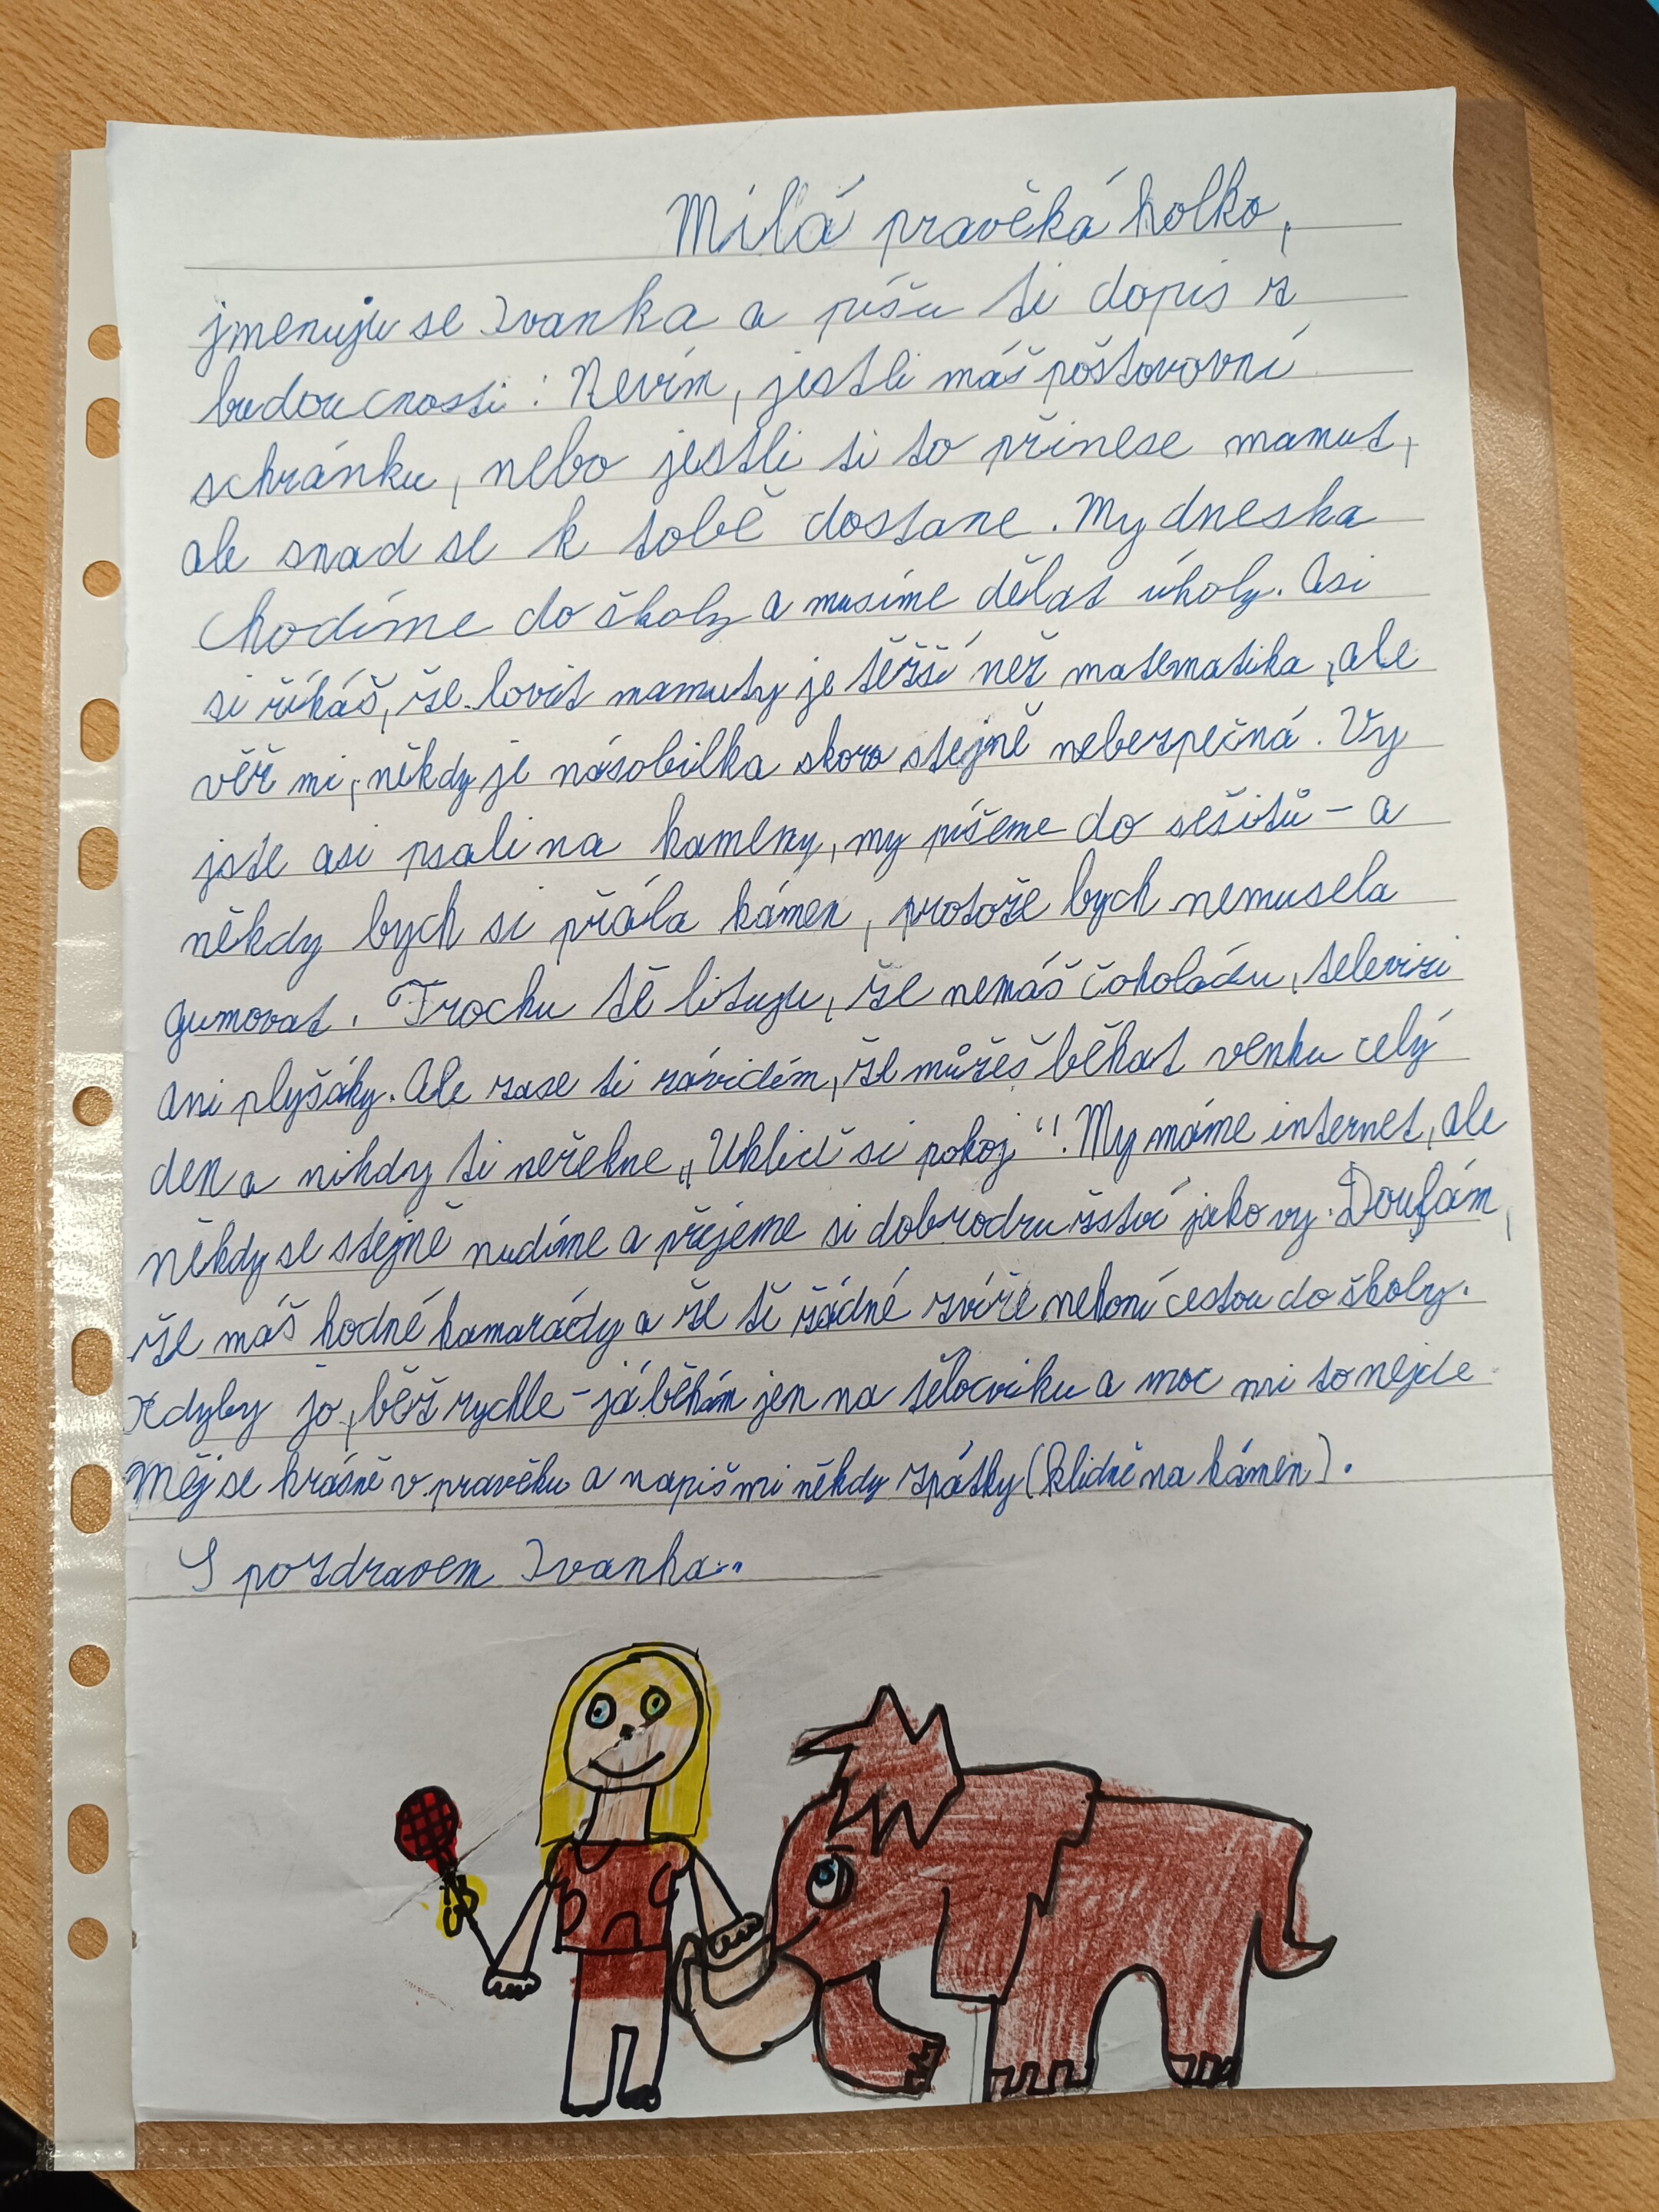 Milá pravěká holko,
jmenuju se Ivanka a píšu ti dopis z
budoucnosti: Nevím, jestli máš poštovovní
schránku, nebo jestli ti to přinese mamut,
ale snad se k tobě dostane. My dneska
chodíme do školy a musíme dělat úkoly. Asi
si říkáš, že lovit mamuty je těžší než matematika, ale
věř mi, někdy je násobilka skoro stejně nebezpečná. Vy
jste asi psali na kameny, my píšeme do sešitů - a
někdy bych si přála kámen, protože bych nemusela
gumovat. Trochu tě lituju, že nemáš čokoládu, televizi
ani plyšáky. Ale zase ti závidím, že můžeš běhat venku celý
den a nikdy ti neřekne „Ukliď si pokoj“. My máme internet, ale
někdy se stejně nudíme a přejeme si dobrodružství jako vy. Doufám,
že máš hodné kamarády a že tě žádné zvíře nehoní cestou do školy.
Kdyby jo, běž rychle - já běhám jen na tělocviku a moc mi to nejde.
Měj se krásně v pravěku a napiš mi někdy zpátky (klidně na kámen).
S pozdravem Ivanka..